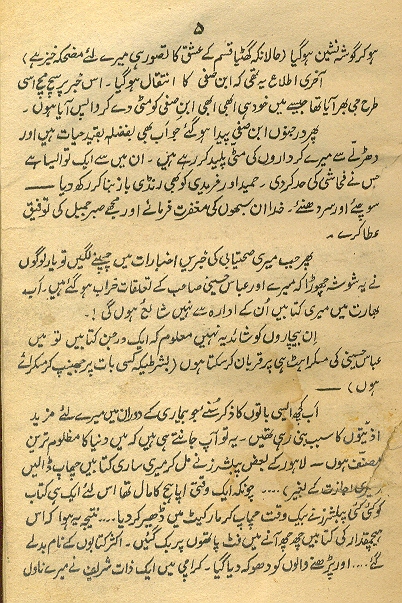 ۵
ہو کر گوشہ نشین ہو گیا (حالانکہ گھٹیا قسم کے عشق کا تصور ہی میرے لئے مضحکہ خیز ہے)
آخری اطلاع یہ تھی کہ ابن صفی کا انتقال ہو گیا۔ اس خبر پر سچ مچ اسی
طرح جی بھر آیا تھا جیسے میں خود ہی ابھی ابھی ابن صفی کو مٹی دے کر واپس آیا ہوں۔
پھر درجنوں ابن صفی پیدا ہو گئے جو اب بھی بفضلہ بقید حیات ہیں اور
دھڑلّے سے میرے کرداروں کی مٹی پلید کر رہے ہیں۔ ان میں سے ایک تو ایسا ہے
جس نے فحاشی کی حد کر دی۔ حمید اور فریدی کو بھی رنڈی باز بنا کر رکھ دیا ——
سوچئے اور سر دھنئے۔ خدا ان سبھوں کی مغفرت فرمائے اور مجھے صبر جمیل کی توفیق
عطا کرے۔
پھر جب میری صحتیابی کی خبریں اخبارات میں چھپنے لگیں تو یار لوگوں
نے یہ شوشہ چھوڑا کہ میرے اور عباس حسینی صاحب کے تعلقات خراب ہو گئے ہیں۔ اب
بھارت میں میری کتابیں اُن کے ادارہ سے نہیں شائع ہوں گی!۔
اِن بیچاروں کو شائد یہ نہیں معلوم کہ ایک درجن کتابیں تو میں
عباس حسینی کی مسکراہٹ ہی پر قربان کر سکتا ہوں (بشرطیکہ کسی بات پر جھینپ کر مسکرائے
ہوں) ——
اب کچھ ایسی باتوں کا ذکر سُنئے جو بیماری کے دوران میں میرے لئے مزید
اذیتوں کا سبب بنی رہی تھیں۔ یہ تو آپ جانتے ہی ہیں کہ میں دنیا کا مظلوم ترین
مصنف ہوں — لاہور کے بعض پبلشرز نے مل کر میری ساری کتابیں چھاپ ڈالیں
(میری اجازت کے بغیر).... چونکہ ایک وقتی اپاہج کا مال تھا اس لئے ایک ہی کتاب
کو کئی کئی پبلشرز نے بیک وقت چھاپ کر مارکیٹ میں ڈھیر کر دیا.... نتیجہ یہ ہوا کہ اس
ہیچمدار کی کتابیں چھ چھ آنے میں فٹ پاتھوں پر بک گئیں۔ اکثر کتابوں کے نام بدلے
گئے.... اور پڑھنے والوں کو دھوکہ دیا گیا۔ کراچی میں ایک ذات شریف نے میرے ناول